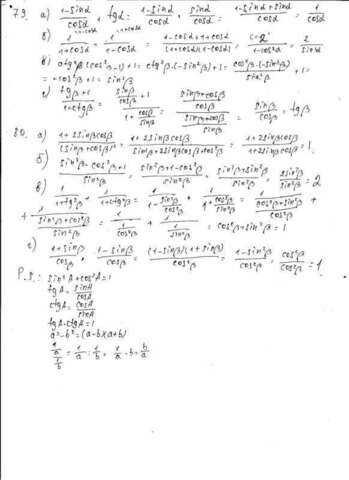 79. а) (1-sinα)/cosα + tgα = (1-sinα)/cosα + sinα/cosα = (1-sinα+sinα)/cosα = 1/cosα
б) 1/(1+cosα) + 1/(1-cosα) = (1-cosα+1+cosα)/((1+cosα)(1-cosα)) = 2/(1-cos²α) = 2/sin²α
в) ctg²β(cos²β-1)+1 = ctg²β·(-sin²β)+1 = cos²β·(-sin²β)/sin²β + 1 =
= -cos²β+1 = sin²β
г) (tgβ+1)/(1+ctgβ) = (sinβ/cosβ+1)/(1+cosβ/sinβ) = ((sinβ+cosβ)/cosβ)/((sinβ+cosβ)/sinβ) = sinβ/cosβ = tgβ
80. а) (1+2sinβcosβ)/(sinβ+cosβ)² = (1+2sinβcosβ)/(sin²β+2sinβcosβ+cos²β) = (1+2sinβcosβ)/(1+2sinβcosβ) = 1.
б) (sin²β-cos²β+1)/sin²β = (sin²β+1-cos²β)/sin²β = (sin²β+sin²β)/sin²β = 2sin²β/sin²β = 2
в) 1/(1+tg²β) + 1/(1+ctg²β) = 1/(1+sin²β/cos²β) + 1/(1+cos²β/sin²β) = 1/((cos²β+sin²β)/cos²β) +
+ 1/((sin²β+cos²β)/sin²β) = 1/(1/cos²β) + 1/(1/sin²β) = cos²β+sin²β = 1
г) (1+sinβ)/cosβ · (1-sinβ)/cosβ = (1-sinβ)(1+sinβ)/cos²β = (1-sin²β)/cos²β = cos²β/cos²β = 1
P.S.: sin²A+cos²A=1
tgA = sinA/cosA
ctgA = cosA/sinA
tgA·ctgA=1
a²-b²=(a-b)(a+b)
(1/a)/(1/b) = 1/a : 1/b = 1/a · b = b/a